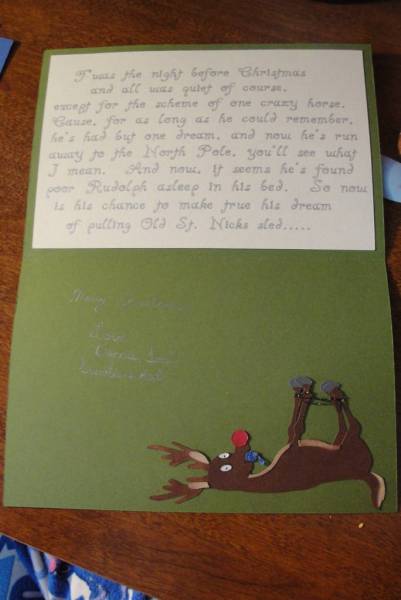 Twas the night before Christmas
and all was quiet of course,
except for the scheme of one crazy horse.
Cause, for as long as he could remember,
he's had but one dream, and now he's run
away to the North Pole, you'll see what
I mean. And now, it seems he's found
poor Rudolph asleep in his bed. So now
is his chance to make true his dream
of pulling Old St. Nicks sled.....
Merry Christmas
Love